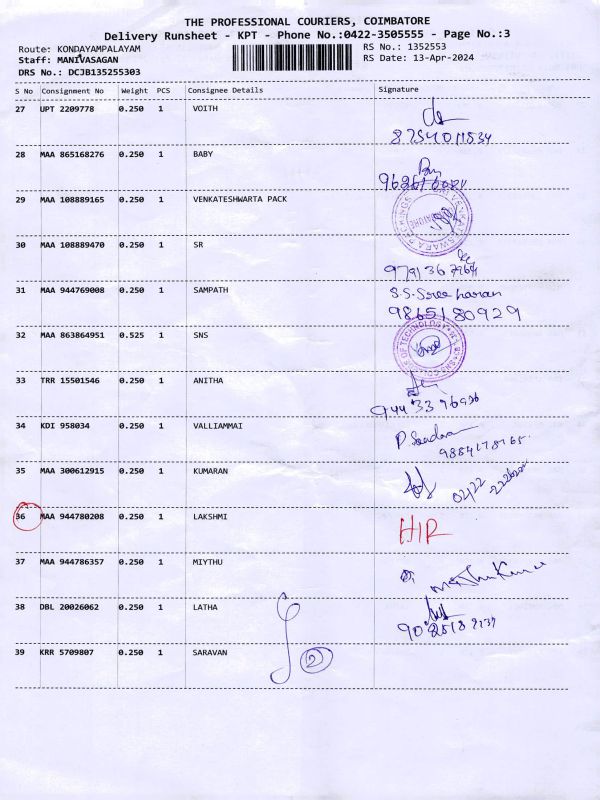 THE PROFESSIONAL COURIERS, COIMBATORE
Delivery Runsheet - KPT - Phone No.:0422-3505555 - Page No.:3
Route: KONDAYAMPALAYAM
RS No.: 1352553
Staff: MANIVASAGAN
RS Date: 13-Apr-2024
DRS No.: DCJB135255303
S No Consignment No Weight PCS Consignee Details Signature
27 UPT 2209778 0.250 1 VOITH
8754011534
28 MAA 865168276 0.250 1 BABY
29 MAA 108889165 0.250 1 VENKATESHWARTA PACK
30 MAA 108889470 0.250 1 SR
31 MAA 944769008 0.250 1 SAMPATH S.S.Sree haran
9865180929
32 MAA 863864951 0.525 1 SNS
OF TECHNOLOGY
33 TRR 15501546 0.250 1 ANITHA
34 KDI 958034 0.250 1 VALLIAMMAI
35 MAA 300612915 0.250 1 KUMARAN
0422
36 MAA 944780208 0.250 1 LAKSHMI HIR
37 MAA 944786357 0.250 1 MIYTHU
38 DBL 20026062 0.250 1 LATHA
39 KRR 5709807 0.250 1 SARAVAN
2